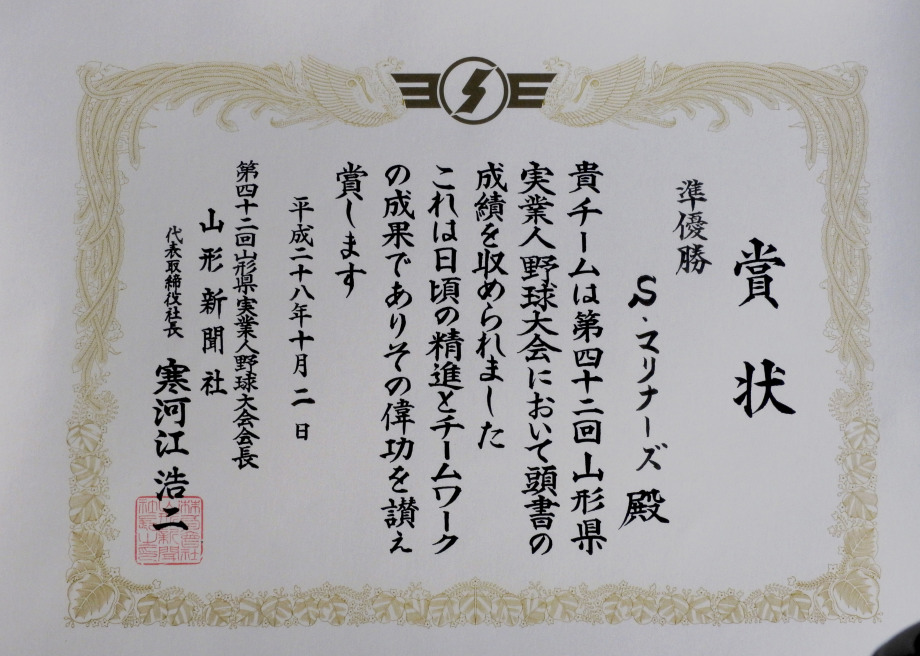 賞状
準優勝
S・マリナーズ殿
貴チームは第四十二回山形県
実業人野球大会において頭書の
成績を収められました
これは日頃の精進とチームワーク
の成果でありその偉功を讃え
賞します
平成二十八年十月二日
第四十二回山形県実業人野球大会会長
山形新聞社
代表取締役社長 寒河江浩二